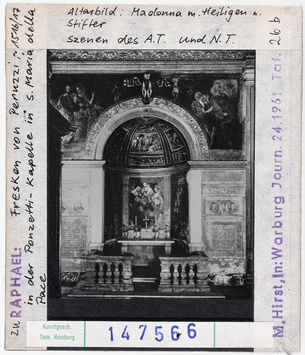 Altarbild: Madonna m. Heiligen u.
Stifter
Szenen des A.T. und N.T.
Zu RAPHAEL: Fresken von Peruzzi, 1516/17
in der Ponzetti-Kapelle in S. Maria della
Pace
M. Hirst, in: Warburg Journ. 24.1961 Taf.
26 b
Kunstgesch.
Sem. Hamburg
147566